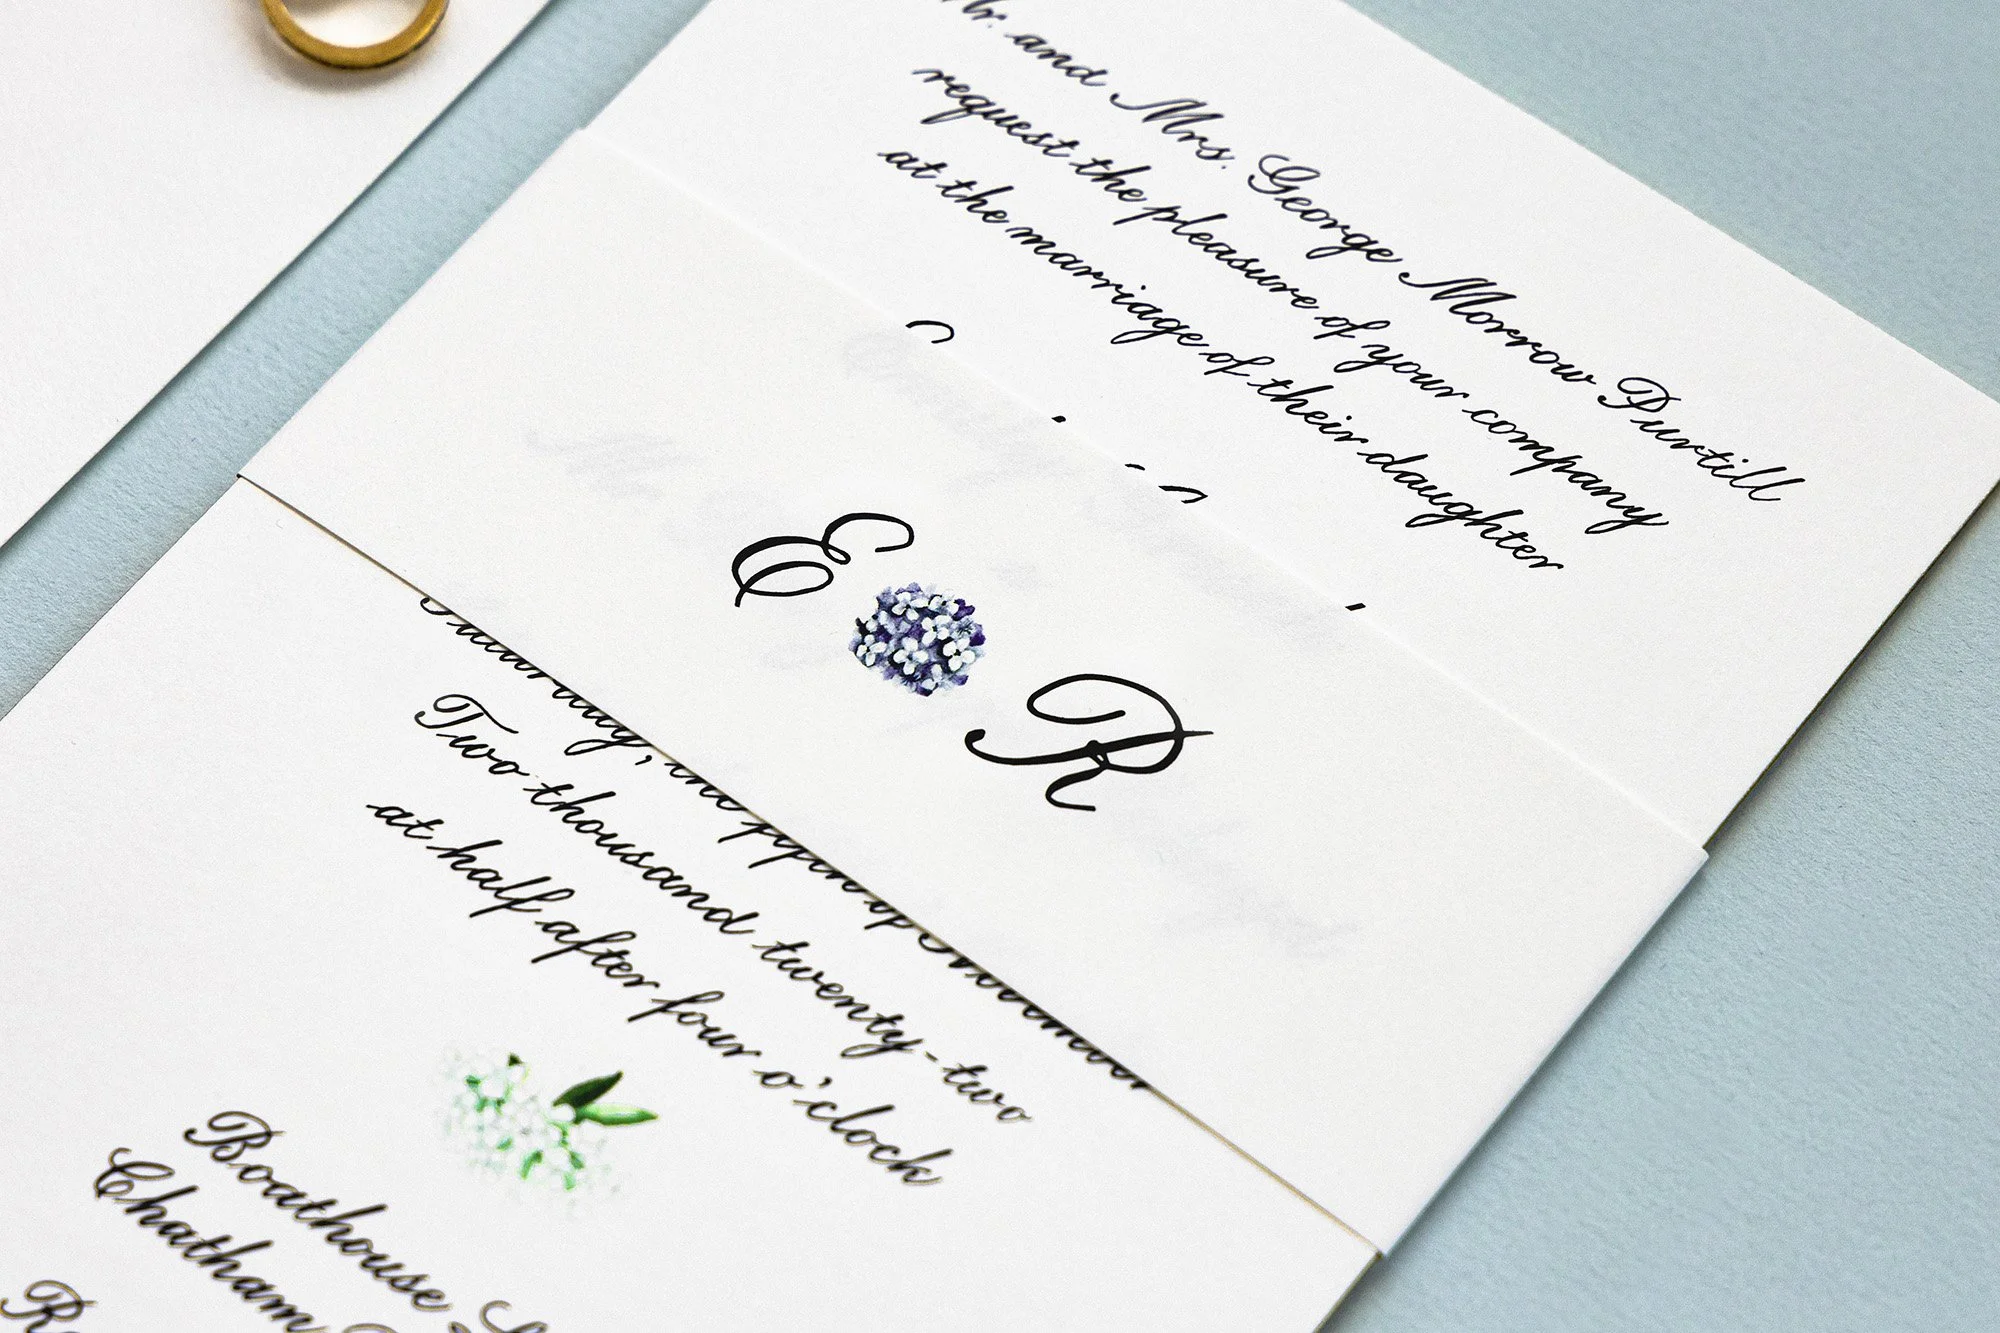 and Mrs. George Morrow Purtill
request the pleasure of your company
at the marriage of their daughter
E R
Saturday, the fifth of November
Two thousand twenty-two
at half after four o'clock
Boathouse
Chatham